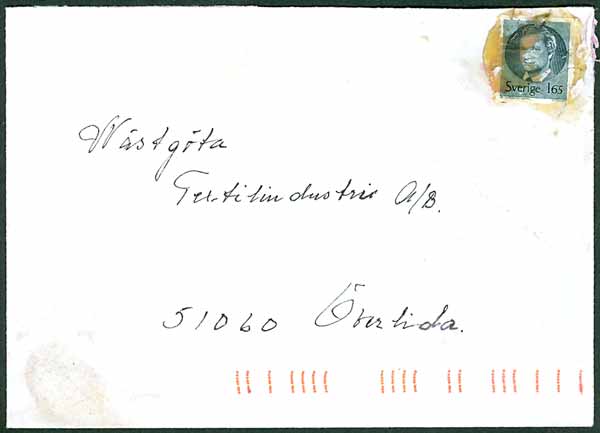 Sverige 165
Wästgöta
Textilindustrie A/B.
51060 Överlida.